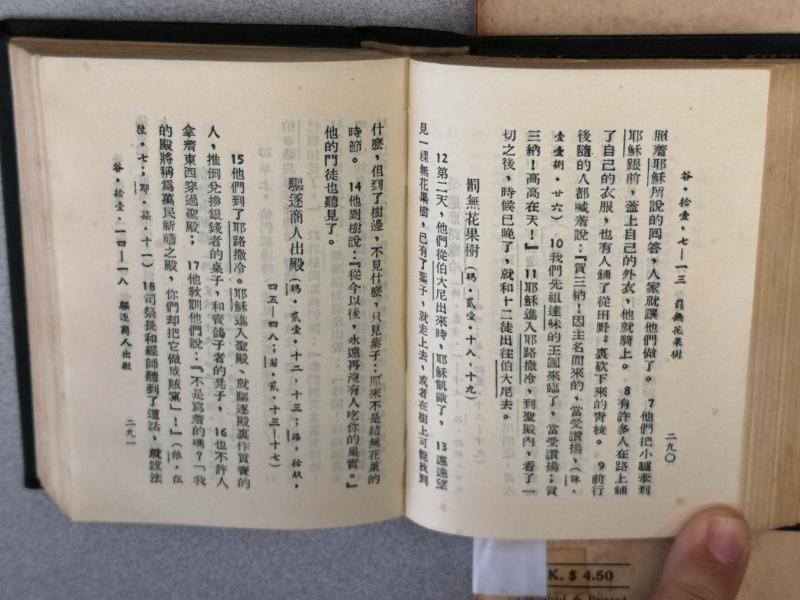 谷·拾壹·七—一三 罰無花果樹
二九〇
照着耶穌所說的回答，人家就讓他們做了。 7他們把小驢牽到
耶穌跟前，蓋上自己的外衣，他就騎上。 8有許多人在路上鋪
了自己的衣服，也有人鋪了從田野裏砍下來的青枝。 9前行
後隨的人都喊着說：『賀三納！因主名而來的，當受讚揚，（詠·
壹壹捌·廿六） 10我們先祖達味的王國來臨了，當受讚揚；賀
三納！高高在天！』 11耶穌進入耶路撒冷，到聖殿內，看了一
切之後，時候已晚了，就和十二徒出往伯大尼去。
罰無花果樹（瑪·貳壹·十八，十九）
12第二天，他們從伯大尼出來時，耶穌飢餓了， 13遠遠望
見一棵無花果樹，已有了葉子，就走上去，或者在樹上可能找到
什麼，但到了樹邊，不見什麼，只見葉子：原來不是結無花果的
時節。 14他對樹說：『從今以後，永遠再沒有人吃你的果實。』
他的門徒也聽見了。
驅逐商人出殿（瑪·貳壹·十二，十三；路·拾玖·
四五—四八；若·貳·十三—十七）
15他們到了耶路撒冷。耶穌進入聖殿、就驅逐殿裏作買賣的
人，推倒兌換銀錢者的桌子，和賣鴿子者的凳子， 16也不許人
拿着東西穿過聖殿； 17他教訓他們說：『不是寫着的嗎？「我
的殿將稱爲萬民祈禱之殿，你們却把它做成賊窩」！』（依·伍
陸·七；耶·柒·十一） 18司祭長和經師聽到了這話，就設法
谷·拾壹·一四—一八 驅逐商人出殿
二九一
K. $ 4.50